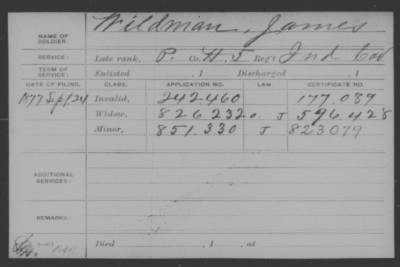 NAME OF SOLDIER: Wildman, James
SERVICE: Late rank, P. Co. H, 5 Reg't Ind Cav
TERM OF SERVICE: Enlisted , 1 Discharged , 1
DATE OF FILING. CLASS. APPLICATION NO. LAW. CERTIFICATE NO.
1877 Sept 24 Invalid, 242.460 177.089
Widow, 826232 J 596.428
Minor, 851.330 J 823079
ADDITIONAL SERVICES:
REMARKS:
Died , 1 , at